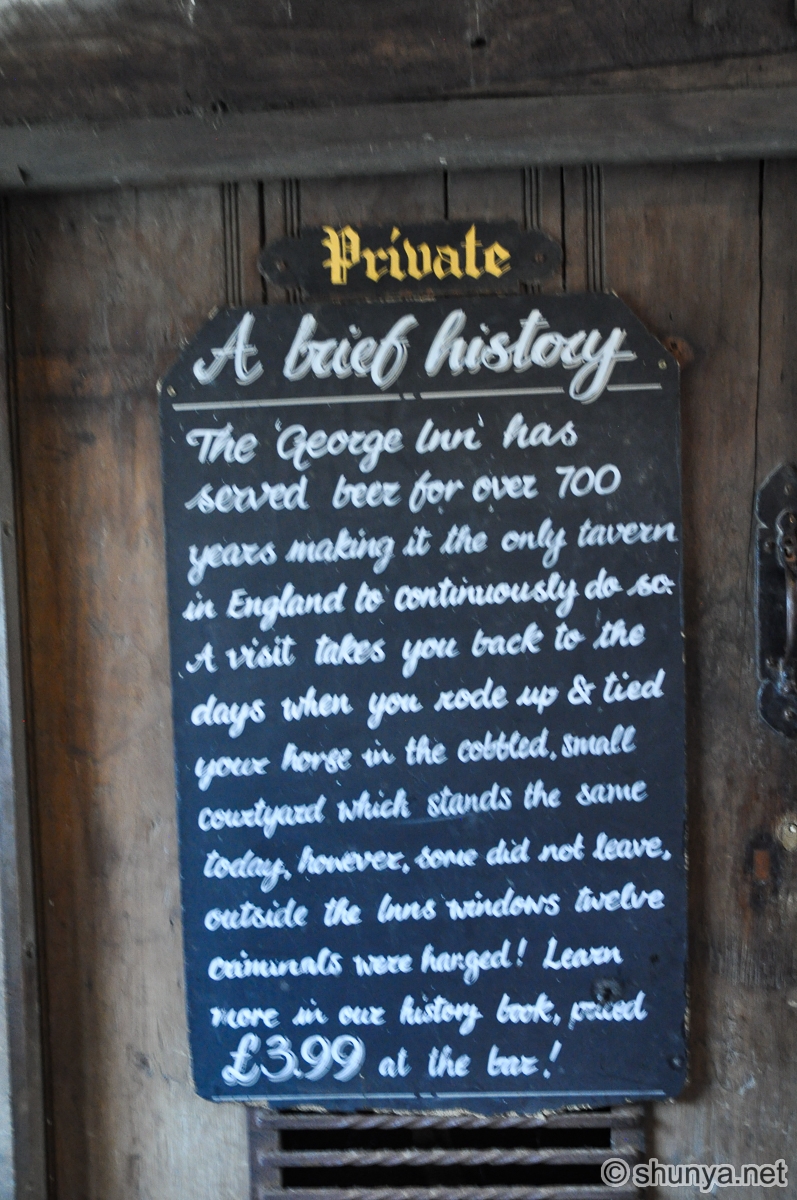 Private
A brief history
The 'George Inn' has
served beer for over 700
years making it the only tavern
in England to continuously do so.
A visit takes you back to the
days when you rode up & tied
your horse in the cobbled, small
courtyard which stands the same
today, however, some did not leave,
outside the Inns windows twelve
criminals were hanged! Learn
more in our history book, priced
£3.99 at the bar!
© shunya.net